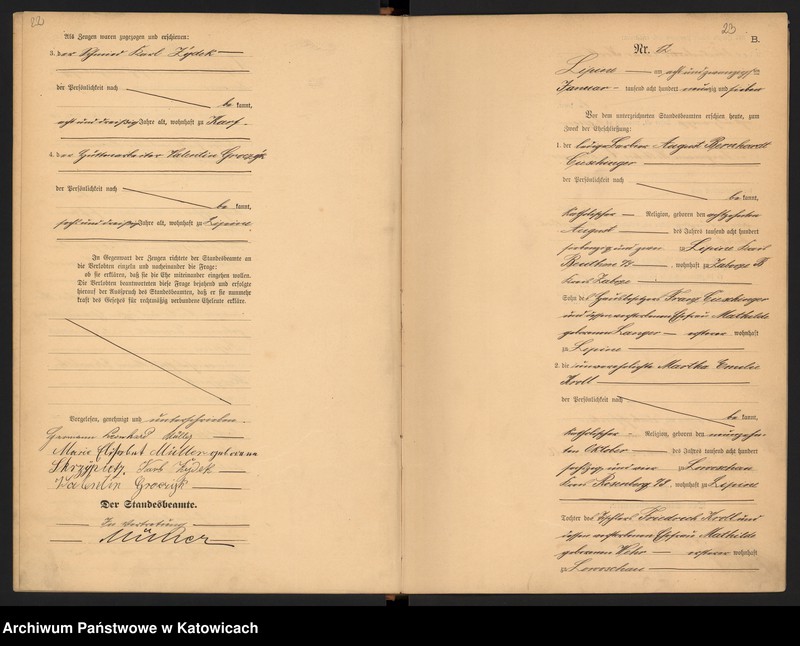 22
Als Zeugen waren zugezogen und erschienen:
3. der Schmied Karl Zydek
der Persönlichkeit nach
be kannt,
acht und dreißig Jahre alt, wohnhaft zu Karf
4. der Hüttenarbeiter Valentin
der Persönlichkeit nach
be kannt,
und dreißig Jahre alt, wohnhaft zu Lipine
In Gegenwart der Zeugen richtete der Standesbeamte an
die Verlobten einzeln und nacheinander die Frage:
ob sie erklären, daß sie die Ehe miteinander eingehen wollen.
Die Verlobten beantworteten diese Frage bejahend und erfolgte
hierauf der Ausspruch des Standesbeamten, daß er sie nunmehr
kraft des Gesetzes für rechtmäßig verbundene Eheleute erkläre.
Vorgelesen, genehmigt und unterschrieben.
Hermann Leonhard Müller
Marie Elisabet Müller geborene
Karl Zydek
Valentin
Der Standesbeamte.
In Vertretung
Müller
23
B.
Nr. 12
Lipine am acht und zwanzigsten
Januar tausend acht hundert neunzig und sieben
Vor dem unterzeichneten Standesbeamten erschien heute, zum
Zweck der Eheschließung:
1. der August Bernhardt
der Persönlichkeit nach
be kannt,
katholischer Religion, geboren den
August des Jahres tausend acht hundert
siebenzig und zwei zu Lipine Kreis
Beuthen OS wohnhaft zu Zaborze B
Kreis Zabrze
Sohn des Franz
und dessen verstorbenen Ehefrau Mathilde
geborenen Langer ersterer wohnhaft
zu Lipine
2. die unverehelichte Martha Emilie
Kroll
der Persönlichkeit nach
be kannt,
katholischer Religion, geboren den neunzehn
ten Oktober des Jahres tausend acht hundert
sechszig und vier zu
Kreis Rosenberg OS wohnhaft zu Lipine
Tochter des Friedrich Kroll und
dessen verstorbenen Ehefrau Mathilde
geborenen ersterer wohnhaft
zu
Archiwum Państwowe w Katowicach